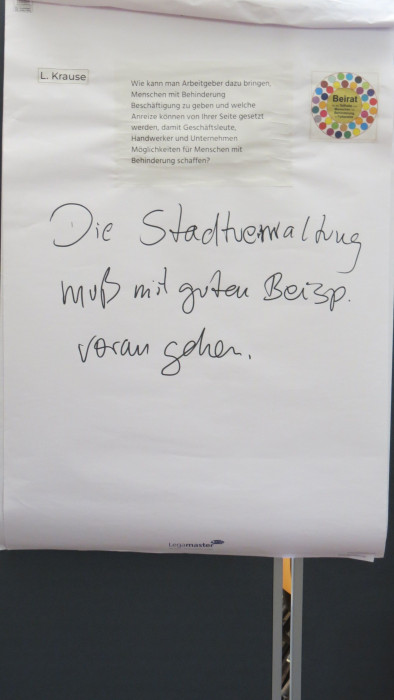 L. Krause
Wie kann man Arbeitgeber dazu bringen,
Menschen mit Behinderung
Beschäftigung zu geben und welche
Anreize können von Ihrer Seite gesetzt
werden, damit Geschäftsleute,
Handwerker und Unternehmen
Möglichkeiten für Menschen mit
Behinderung schaffen?
Beirat
Die Stadtverwaltung
muß mit guten Beisp.
voran gehen.
Legamaster